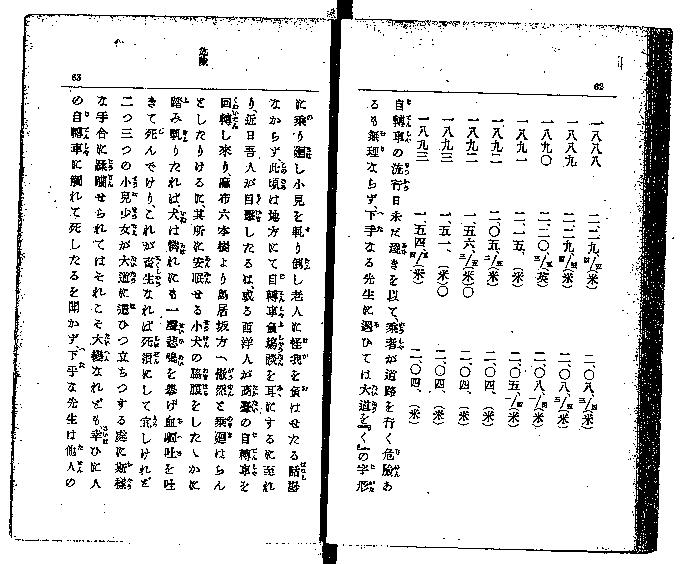 62
一八八八 二、二九、 (米) 二、〇八、 (米)
一八八九 二、二九、 (米) 二、〇八、 (米)
一八九〇 二、二〇、 (英) 二、〇八、 (米)
一八九一 二、一五、(米) 二、〇五、 (米)
一八九二 二、〇五、 (米) 二、〇四、(米)
一八九二 一、五六、 (米)〇 二、〇四、(米)
一八九三 一、五一、(米)〇 二、〇四、(米)
一八九三 一、五四、 (米) 二、〇四、(米)
自轉車の流行日未だ淺きを以て、乘者が道路を行く危險あ
るも無理ならず、下手なる先生に遇ひては大道を『く』の字形
危險
63
に乘り廻し小兒を轢り倒し老人に怪我を負はせたる話尠
なからず、此頃は地方にて自轉車負塲談を耳にするに至れ
り、近日吾人が目擊したるは、或る西洋人が高臺の自轉車を
回轉し來り、麻布六本樹より鳥居坂方へ傲然と乘廻はらん
としたりけるに、其所に安眠せる小犬の脇腹をしたゝかに
踏み轢りたれば犬は憐れにも一聲悲鳴を擧げ血嘔吐を吐
きて死んでけり、これが畜生なれば死損にして宜しけれど
二つ三つの小兒少女が大道に遊ひつ立ちつする處に斯樣
な手合に蹂躙せられてはそれこそ大變なれども幸ひに人
の自轉車に觸れて死したるを聞かず、下手な先生は他人の